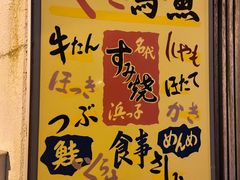 牛たん
名代
すみ焼
浜っ子
ししゃも
ほっき
ほたて
つぶ
かき
鮭
いくら
食事
めんめ